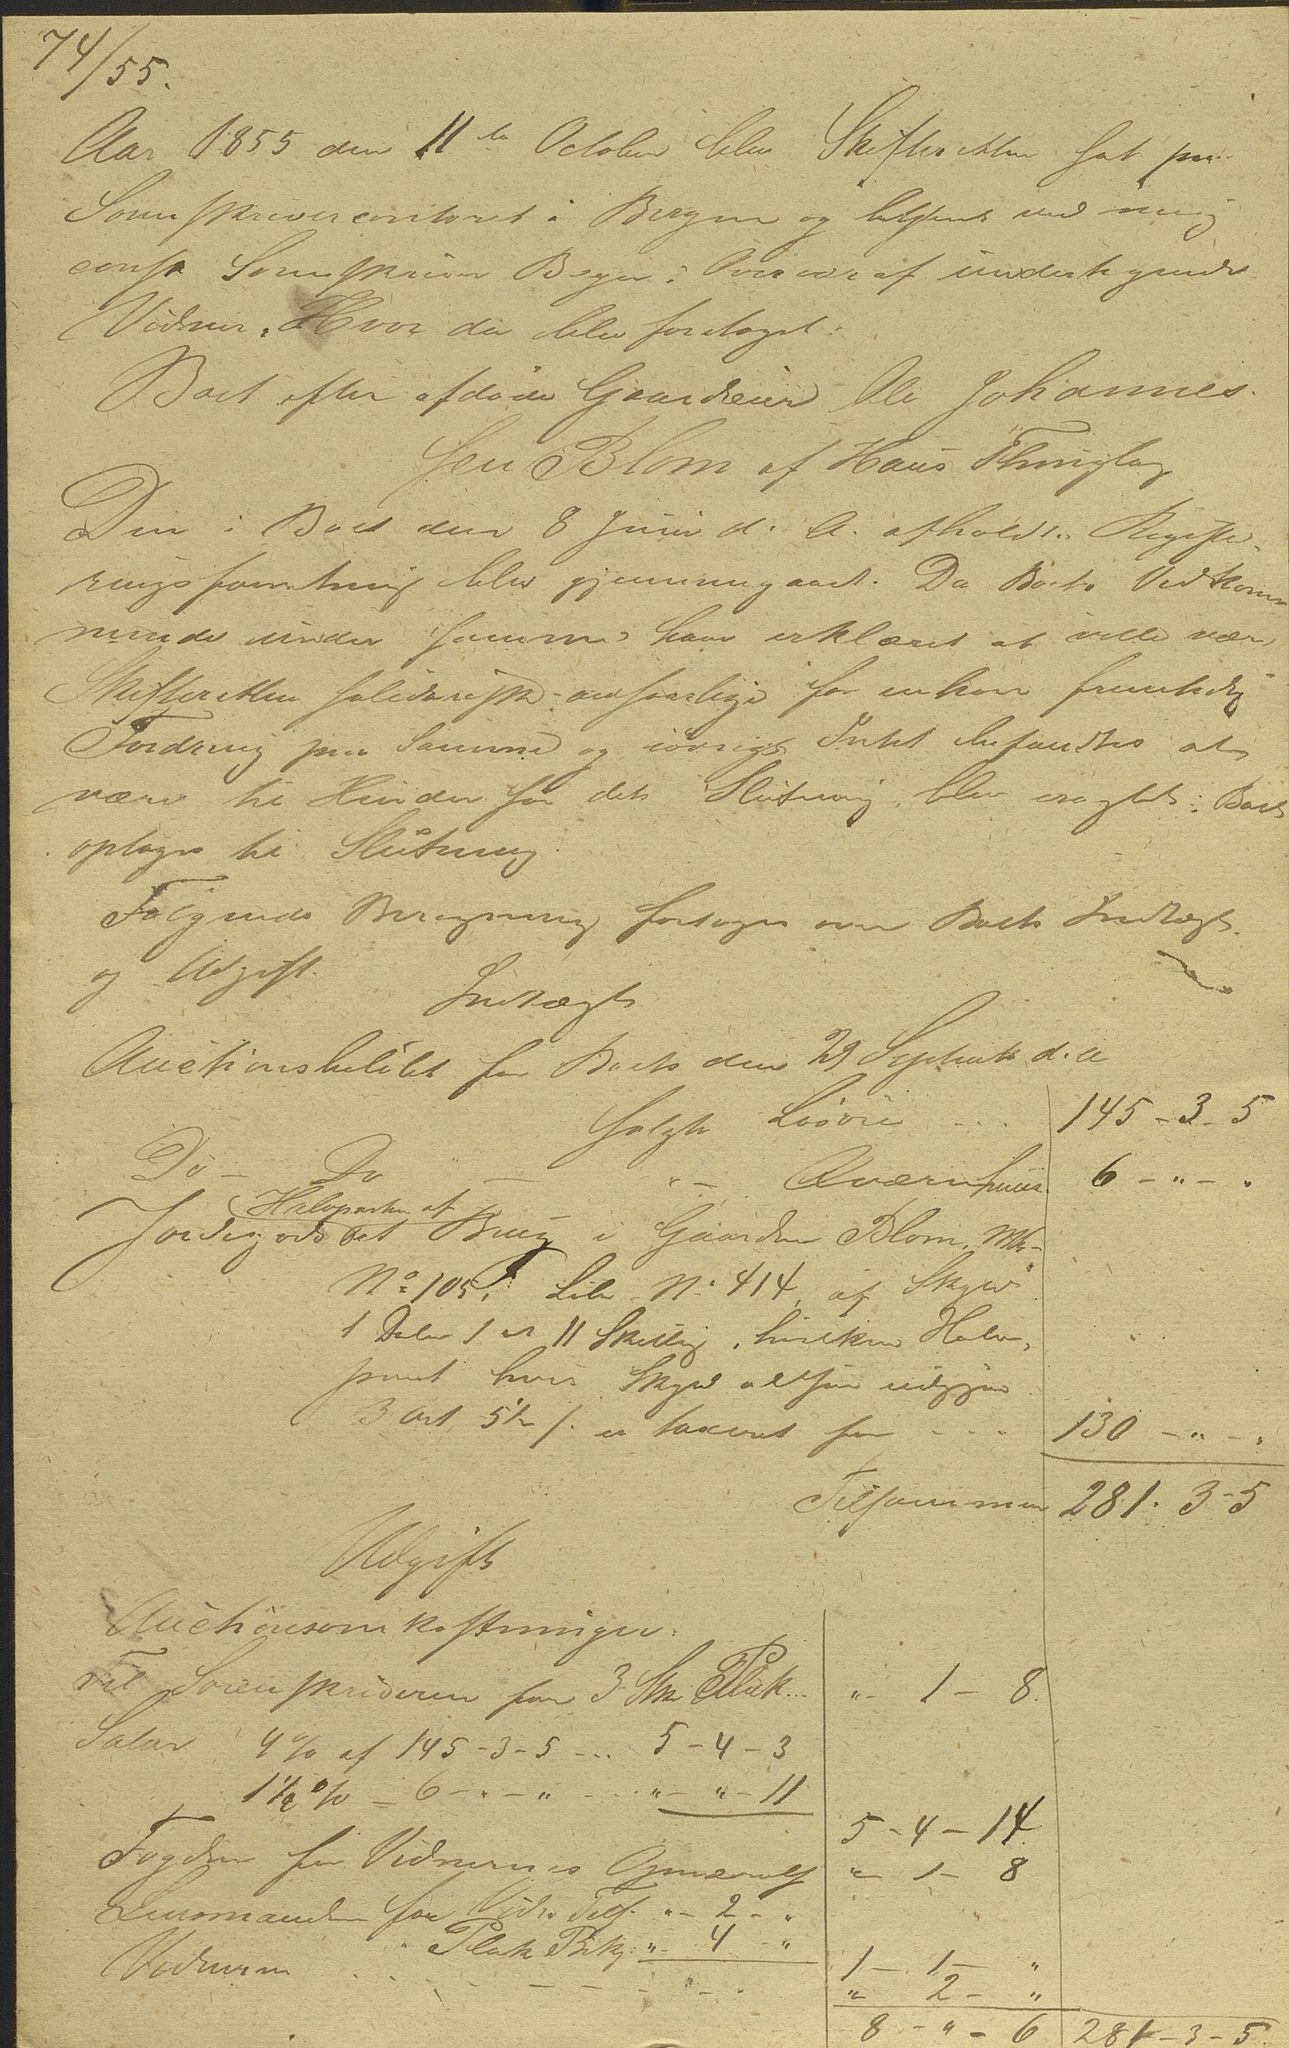 74/55.
Aar 1855 den 11te October blev Skifteretten sat paa
Sorenskrivercontoret i Bergen og betjent ved mig
const Sorenskriver Beyer i Overvær af undertegnede
Vidner. Hvor da blev foretaget:
Boet efter afdøde Gaardeier Ole Johannes-
sen Blom af Haus Thinglag
Den i Boet den 8 Juni d. A. afholdte Registe-
ringsforretning blev gjennemgaaet. Da Boets Vedkom-
mende under samme have erklæret at ville være
Skifteretten solidarisk ansvarlige for enhver fremtidig
Fordring paa samme og iøvrigt Intet befandtes at
være til Hinder for dets Slutning, blev eragtet: Boet
optages til Slutning.
Følgende Beregning foretages over Boets Indtægt
og Udgift.
Indtægt
Auctionsbeløbet for Boets den 29 Septbr d. A
solgte Løsøre ... 145 - 3 - 5
Do - Do - " - Qværnhuus 6 - " - "
Halvparten af
Jordegods et Brug i Gaarden Blom, Mtr-
No 105, Løbe No 414, af Skyld
1 Daler 1 ort 11 Skilling, hvilken Halv-
part hvis Skyld altsaa udgjør
3 Ort 5½ s. er taxeret for - - - 130 - " - "
Tilsammen 281 - 3 - 5
Udgift
Auctionsomkostninger:
Til Sorenskriveren for 3 Stk Plak... " - 1 - 8.
Salar 4 % af 145 - 3 - 5 ... 5 - 4 - 3
1½ % - 6 - " - " ... " - " - 11
5 - 4 - 14
Fogden for Vidnernes Opnævnelse " - 1 - 8
Lensmanden for Vidn. Tils. " - 2 - "
" Plak Bekj: " - 4 - "
1 - 1 - "
Vidnerne - - - " 2 - "
8 - " - 6 281 - 3 - 5.